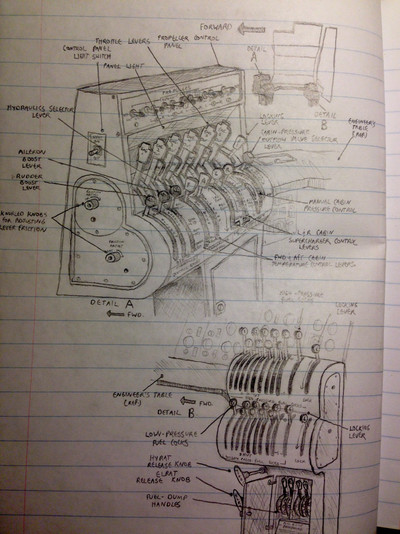 FORWARD
DETAIL
A
THROTTLE LEVERS
PROPELLER CONTROL
PANEL
CONTROL PANEL
LIGHT SWITCH
PANEL LIGHT
HYDRAULICS SELECTOR
LEVER
LOCKING
LEVER
DETAIL
B
ENGINEER'S
TABLE
(REF)
AILERON
BOOST
LEVER
RUDDER
BOOST
LEVER
MANUAL CABIN
PRESSURE CONTROL
KNURLED KNOBS
FOR ADJUSTING
LEVER FRICTION
L + R CABIN
SUPERCHARGER CONTROL
LEVERS
FWD + AFT CABIN
TEMPERATURE CONTROL LEVERS
DETAIL A
FWD.
HIGH-PRESSURE
FUEL COCKS
LOCKING
LEVER
ENGINEER'S TABLE
(REF)
FWD.
DETAIL B
LOCKING
LEVER
LOW-PRESSURE
FUEL COCKS
HYRAT
RELEASE KNOB
ELRAT
RELEASE KNOB
FUEL-DUMP
HANDLES